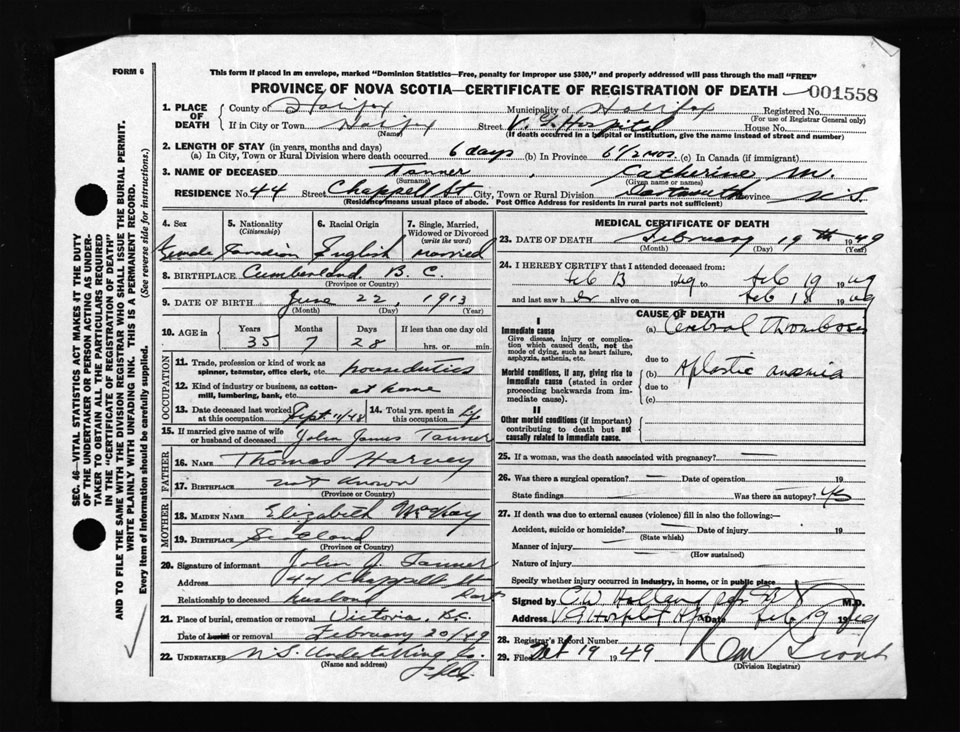 FORM 6
This form if placed in an envelope, marked "Dominion Statistics—Free, penalty for improper use $300," and properly addressed will pass through the mail "FREE"
PROVINCE OF NOVA SCOTIA—CERTIFICATE OF REGISTRATION OF DEATH 001558
1. PLACE OF DEATH
County of Halifax Municipality of Halifax Registered No.
(For use of Registrar General only)
If in City or Town Halifax Street V. G. Hospital House No.
(Name) (If death occurred in a hospital or institution, give the name instead of street and number)
2. LENGTH OF STAY (in years, months and days)
(a) In City, Town or Rural Division where death occurred 6 days (b) In Province 6 1/2 mos. (c) In Canada (if immigrant)
3. NAME OF DECEASED Tanner, Catherine M.
(Surname) (Given name or names)
RESIDENCE No. 44 Street Chappell St City, Town or Rural Division Dartmouth Province N.S.
(Residence means usual place of abode. Post Office Address for residents of rural parts not sufficient)
4. Sex 5. Nationality (Citizenship) 6. Racial Origin 7. Single, Married, Widowed or Divorced (write the word)
Female Canadian English Married
8. BIRTHPLACE Cumberland B. C.
(Province or Country)
9. DATE OF BIRTH June 22, 1913
(Month) (Day) (Year)
10. AGE in Years Months Days If less than one day old
35 7 28 hrs. or min.
OCCUPATION
11. Trade, profession or kind of work as spinner, teamster, office clerk, etc. housedutics
12. Kind of industry or business, as cotton-mill, lumbering, bank, etc. at home
13. Date deceased last worked at this occupation Sept. 11/48 14. Total yrs. spent in this occupation life
15. If married give name of wife or husband of deceased John James Tanner
FATHER
16. NAME Thomas Harvey
17. BIRTHPLACE not known
(Province or Country)
MOTHER
18. MAIDEN NAME Elizabeth McKay
19. BIRTHPLACE Scotland
(Province or Country)
20. Signature of informant John J. Tanner
Address 44 Chappell St Dart
Relationship to deceased husband
21. Place of burial, cremation or removal Victoria, B.C.
Date of burial or removal February 20/49
22. UNDERTAKER N.S. Undertaking Co.
(Name and address)
MEDICAL CERTIFICATE OF DEATH
23. DATE OF DEATH February 19th 1949
(Month) (Day) (Year)
24. I HEREBY CERTIFY that I attended deceased from:
Feb 13 1949 Feb 19 1949
and last saw her alive on Feb 18 1949
CAUSE OF DEATH
I
Immediate cause
Give disease, injury or complication which caused death, not the mode of dying, such as heart failure, asphyxia, asthenia, etc.
(a) Cerebral Thrombosis
due to
Morbid conditions, if any, giving rise to immediate cause (stated in order proceeding backwards from immediate).
(b) Aplastic anemia
due to
(c)
II
Other morbid conditions (if important) contributing to death but not causally related to immediate cause.
25. If a woman, was the death associated with pregnancy?
26. Was there a surgical operation? Date of operation 19
State findings Was there an autopsy? yes
27. If death was due to external causes (violence) fill in also the following:—
Accident, suicide or homicide? Date of injury 19
(State which)
Manner of injury
(How sustained)
Nature of injury
Specify whether injury occurred in industry, in home, or in public place
Signed by C W Holland M.D.
Address V G Hospital Hfx Date Feb 19 1949
28. Registrar's Record Number
29. Filed 19 1949
(Division Registrar)
SEC. 46—VITAL STATISTICS ACT MAKES IT THE DUTY OF THE UNDERTAKER OR PERSON ACTING AS UNDERTAKER TO OBTAIN ALL THE PARTICULARS REQUIRED IN THE "CERTIFICATE OF REGISTRATION OF DEATH" AND TO FILE THE SAME WITH THE DIVISION REGISTRAR WHO SHALL ISSUE THE BURIAL PERMIT.
WRITE PLAINLY WITH UNFADING INK. THIS IS A PERMANENT RECORD.
Every item of Information should be carefully supplied. (See reverse side for instructions.)